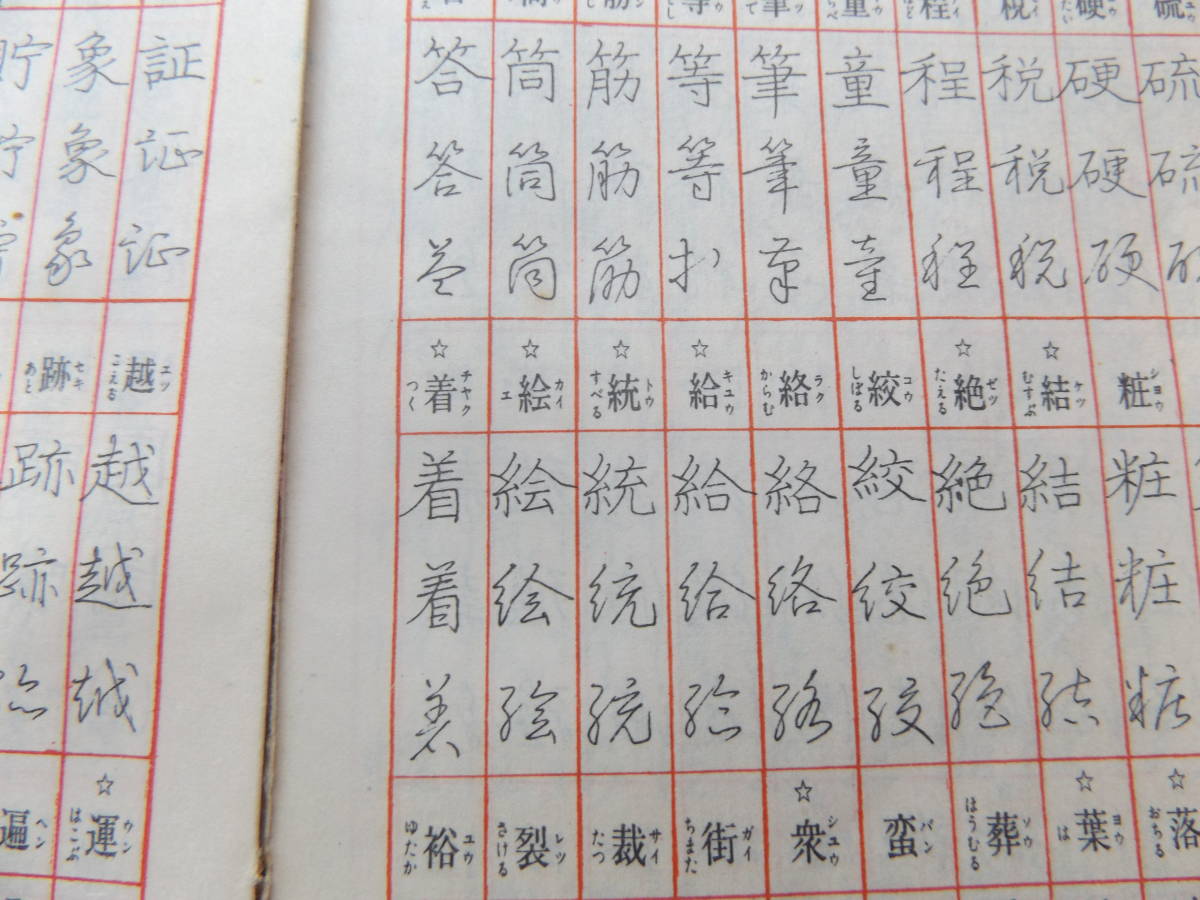 硫 硫
硬 硬 硬
税 税 税
程 程 程
童 童 童
筆 筆 筆
等 等 等
筋 筋 筋
筒 筒 筒
答 答 答
粧 シヨウ
粧 粧 粧
☆ 結 ケツ むすぶ
結 結 結
☆ 絶 ゼツ たえる
絶 絶 絶
絞 コウ しぼる
絞 絞 絞
絡 ラク からむ
絡 絡 絡
☆ 給 キユウ
給 給 給
☆ 統 トウ すべる
統 統 統
☆ 絵 カイ エ
絵 絵 絵
☆ 着 チヤク つく
着 着 着
☆ 落 ラク おちる
☆ 葉 ヨウ は
葬 ソウ ほうむる
蛮 バン
☆ 衆 シユウ
街 ガイ ちまた
裁 サイ たつ
裂 レツ さける
裕 ユウ ゆたか
証 証 証
象 象 象
貯 貯
越 エツ こえる
越 越 越
跡 セキ あと
跡 跡 跡
☆ 運 ウン はこぶ
遍 ヘン